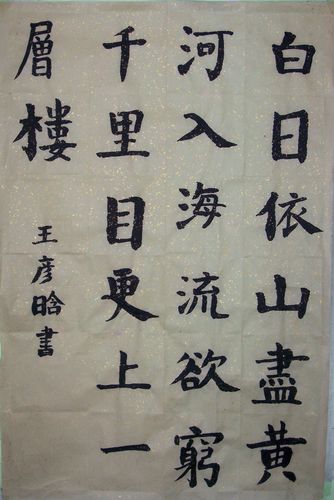 白日依山盡黄
河入海流欲窮
千里目更上一
層樓
王彦晗書